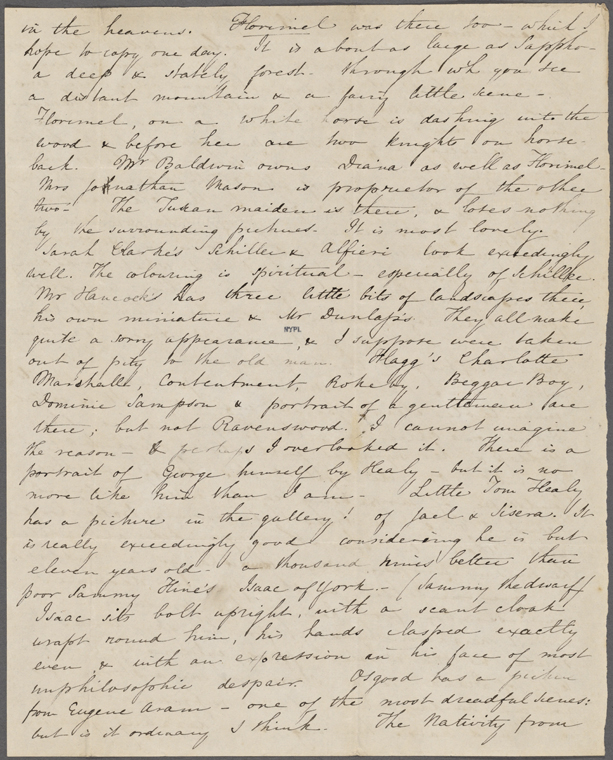 in the heavens. Florimel was there too - which I
hope to copy one day. It is about as large as Sappho -
a deep & stately forest - through wh you see
a distant mountain & a fairy little scene -
Florimel, on a white horse is dashing into the
wood & before her are two Knights on horse-
back. Mr Baldwin owns Diana as well as Florimel.
Mrs Jonathan Mason is proprietor of the other
two - The Tuscan maiden is there, & loses nothing
by the surrounding pictures. It is most lovely.
Sarah Clarke's Schiller & Alfieri look exceedingly
well. The colouring is spiritual - especially of Schiller.
Mr Hancock's has three little bits of landscapes there
his own miniature & Mr Dunlap's. They all make
NYPL
quite a sorry appearance, & I suppose were taken
out of pity to the old man. Flagg's Charlotte
Marshall, Contentment, Rokeby, Beggar Boy,
Dominie Sampson & portrait of a gentleman are
there; but not Ravenswood. I cannot imagine
the reason - & perhaps I overlooked it. There is a
portrait of George himself by Healy - but it is no
more like him than I am - Little Tom Healy
has a picture in the gallery! of Jael & Sisera. It
is really exceedingly good considering he is but
eleven years old - a thousand times better than
poor Sammy Hine's Isaac of York - (Sammy the dwarf)
Isaac sits bolt upright, with a scant cloak
wrapt round him, his hands clasped exactly
even & with an expression on his face of most
unphilosophic despair. Osgood has a picture
from Eugene Aram - one of the most dreadful scenes:
but is it ordinary I think. The Nativity from